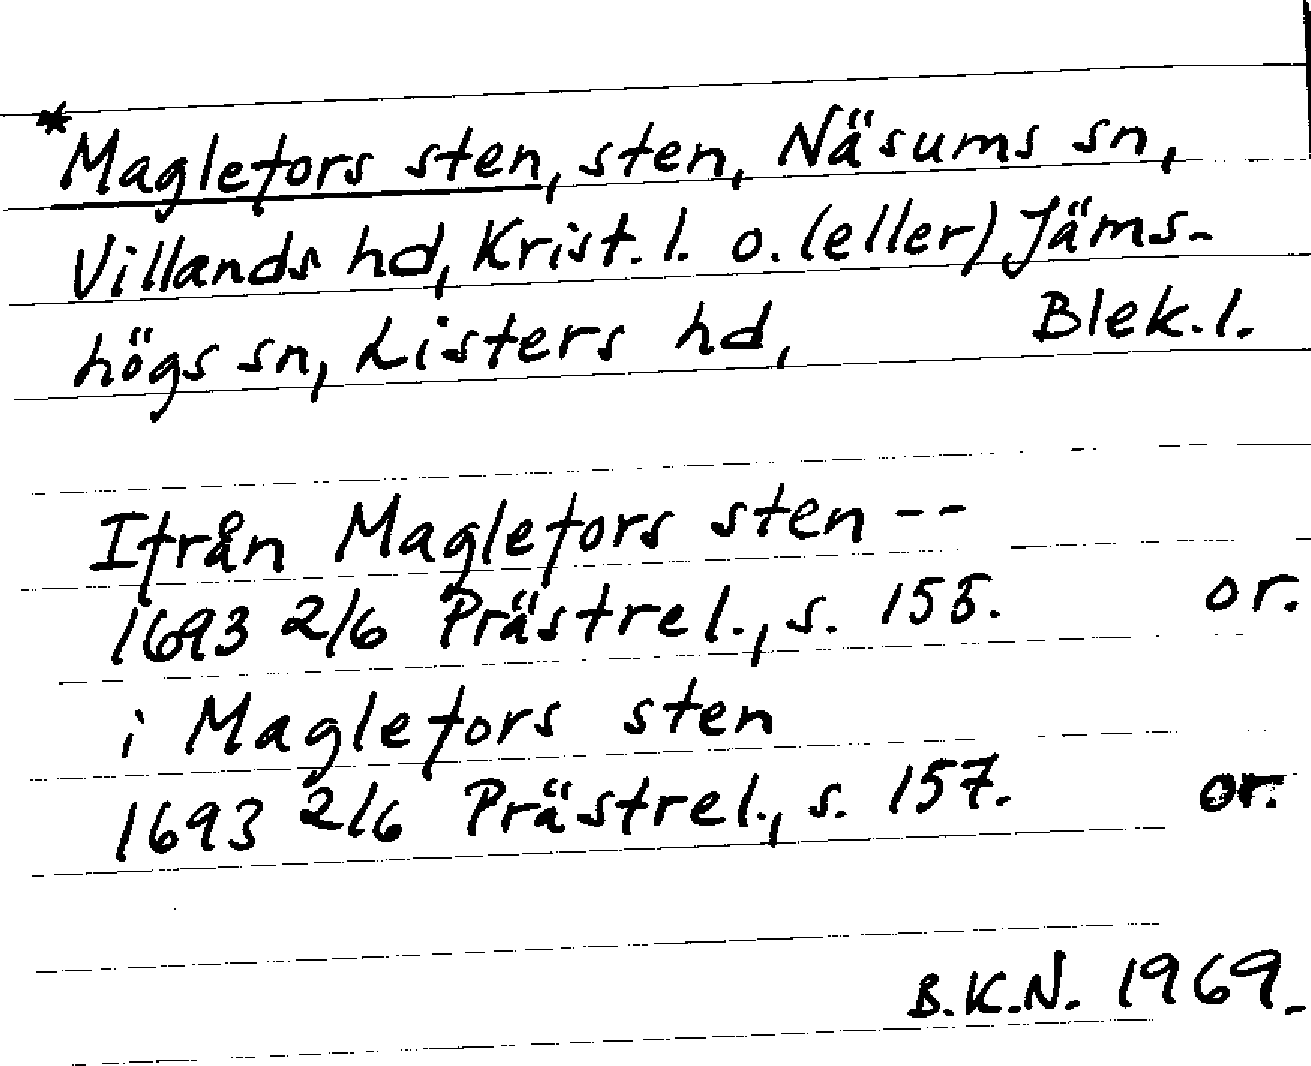 *Maglefors sten, sten, Näsums sn,
Villands hd, Krist. l. o. (eller) Jäms-
högs sn, Listers hd, Blek. l.
Ifrån Maglefors sten --
1693 2/6 Prästrel., s. 155. or.
i Maglefors sten
1693 2/6 Prästrel., s. 157. or.
B.K.N. 1969.